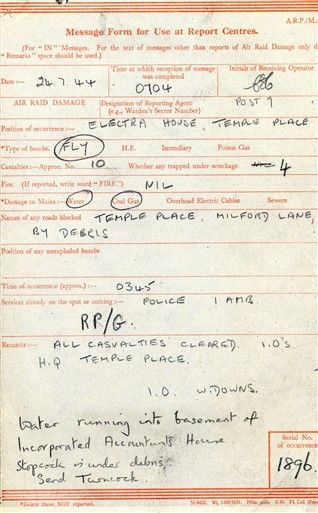 A.R.P./M.
Message Form for Use at Report Centres.
(For "IN" Messages. For the text of messages other than reports of Air Raid Damage only the
"Remarks" space should be used.)
Date:— 24.7.44
Time at which reception of message
was completed
0704
Initials of Receiving Operator
AIR RAID DAMAGE
Designation of Reporting Agent
(e.g., Warden's Sector Number)
POST 9
Position of occurrence:— ELECTRA HOUSE, TEMPLE PLACE
*Type of bombs: FLY H.E. Incendiary Poison Gas
Casualties:—Approx. No. 10 Whether any trapped under wreckage 4
Fire. (If reported, write word "FIRE".) NIL
*Damage to Mains:—Water Coal Gas Overhead Electric Cables Sewers
Names of any roads blocked TEMPLE PLACE, MILFORD LANE,
BY DEBRIS
Position of any unexploded bombs
Time of occurrence (approx.):— 0345
Services already on the spot or coming:— POLICE 1 AMB.
RP/G.
Remarks:— ALL CASUALTIES CLEARED. I.O's
H.Q TEMPLE PLACE.
I.O. W. DOWNS.
Water running into basement of
Incorporated Accountants House
Stopcock is under debris.
Send Turncock.
Serial No. of
occurrence
1896.
*Delete those NOT reported.